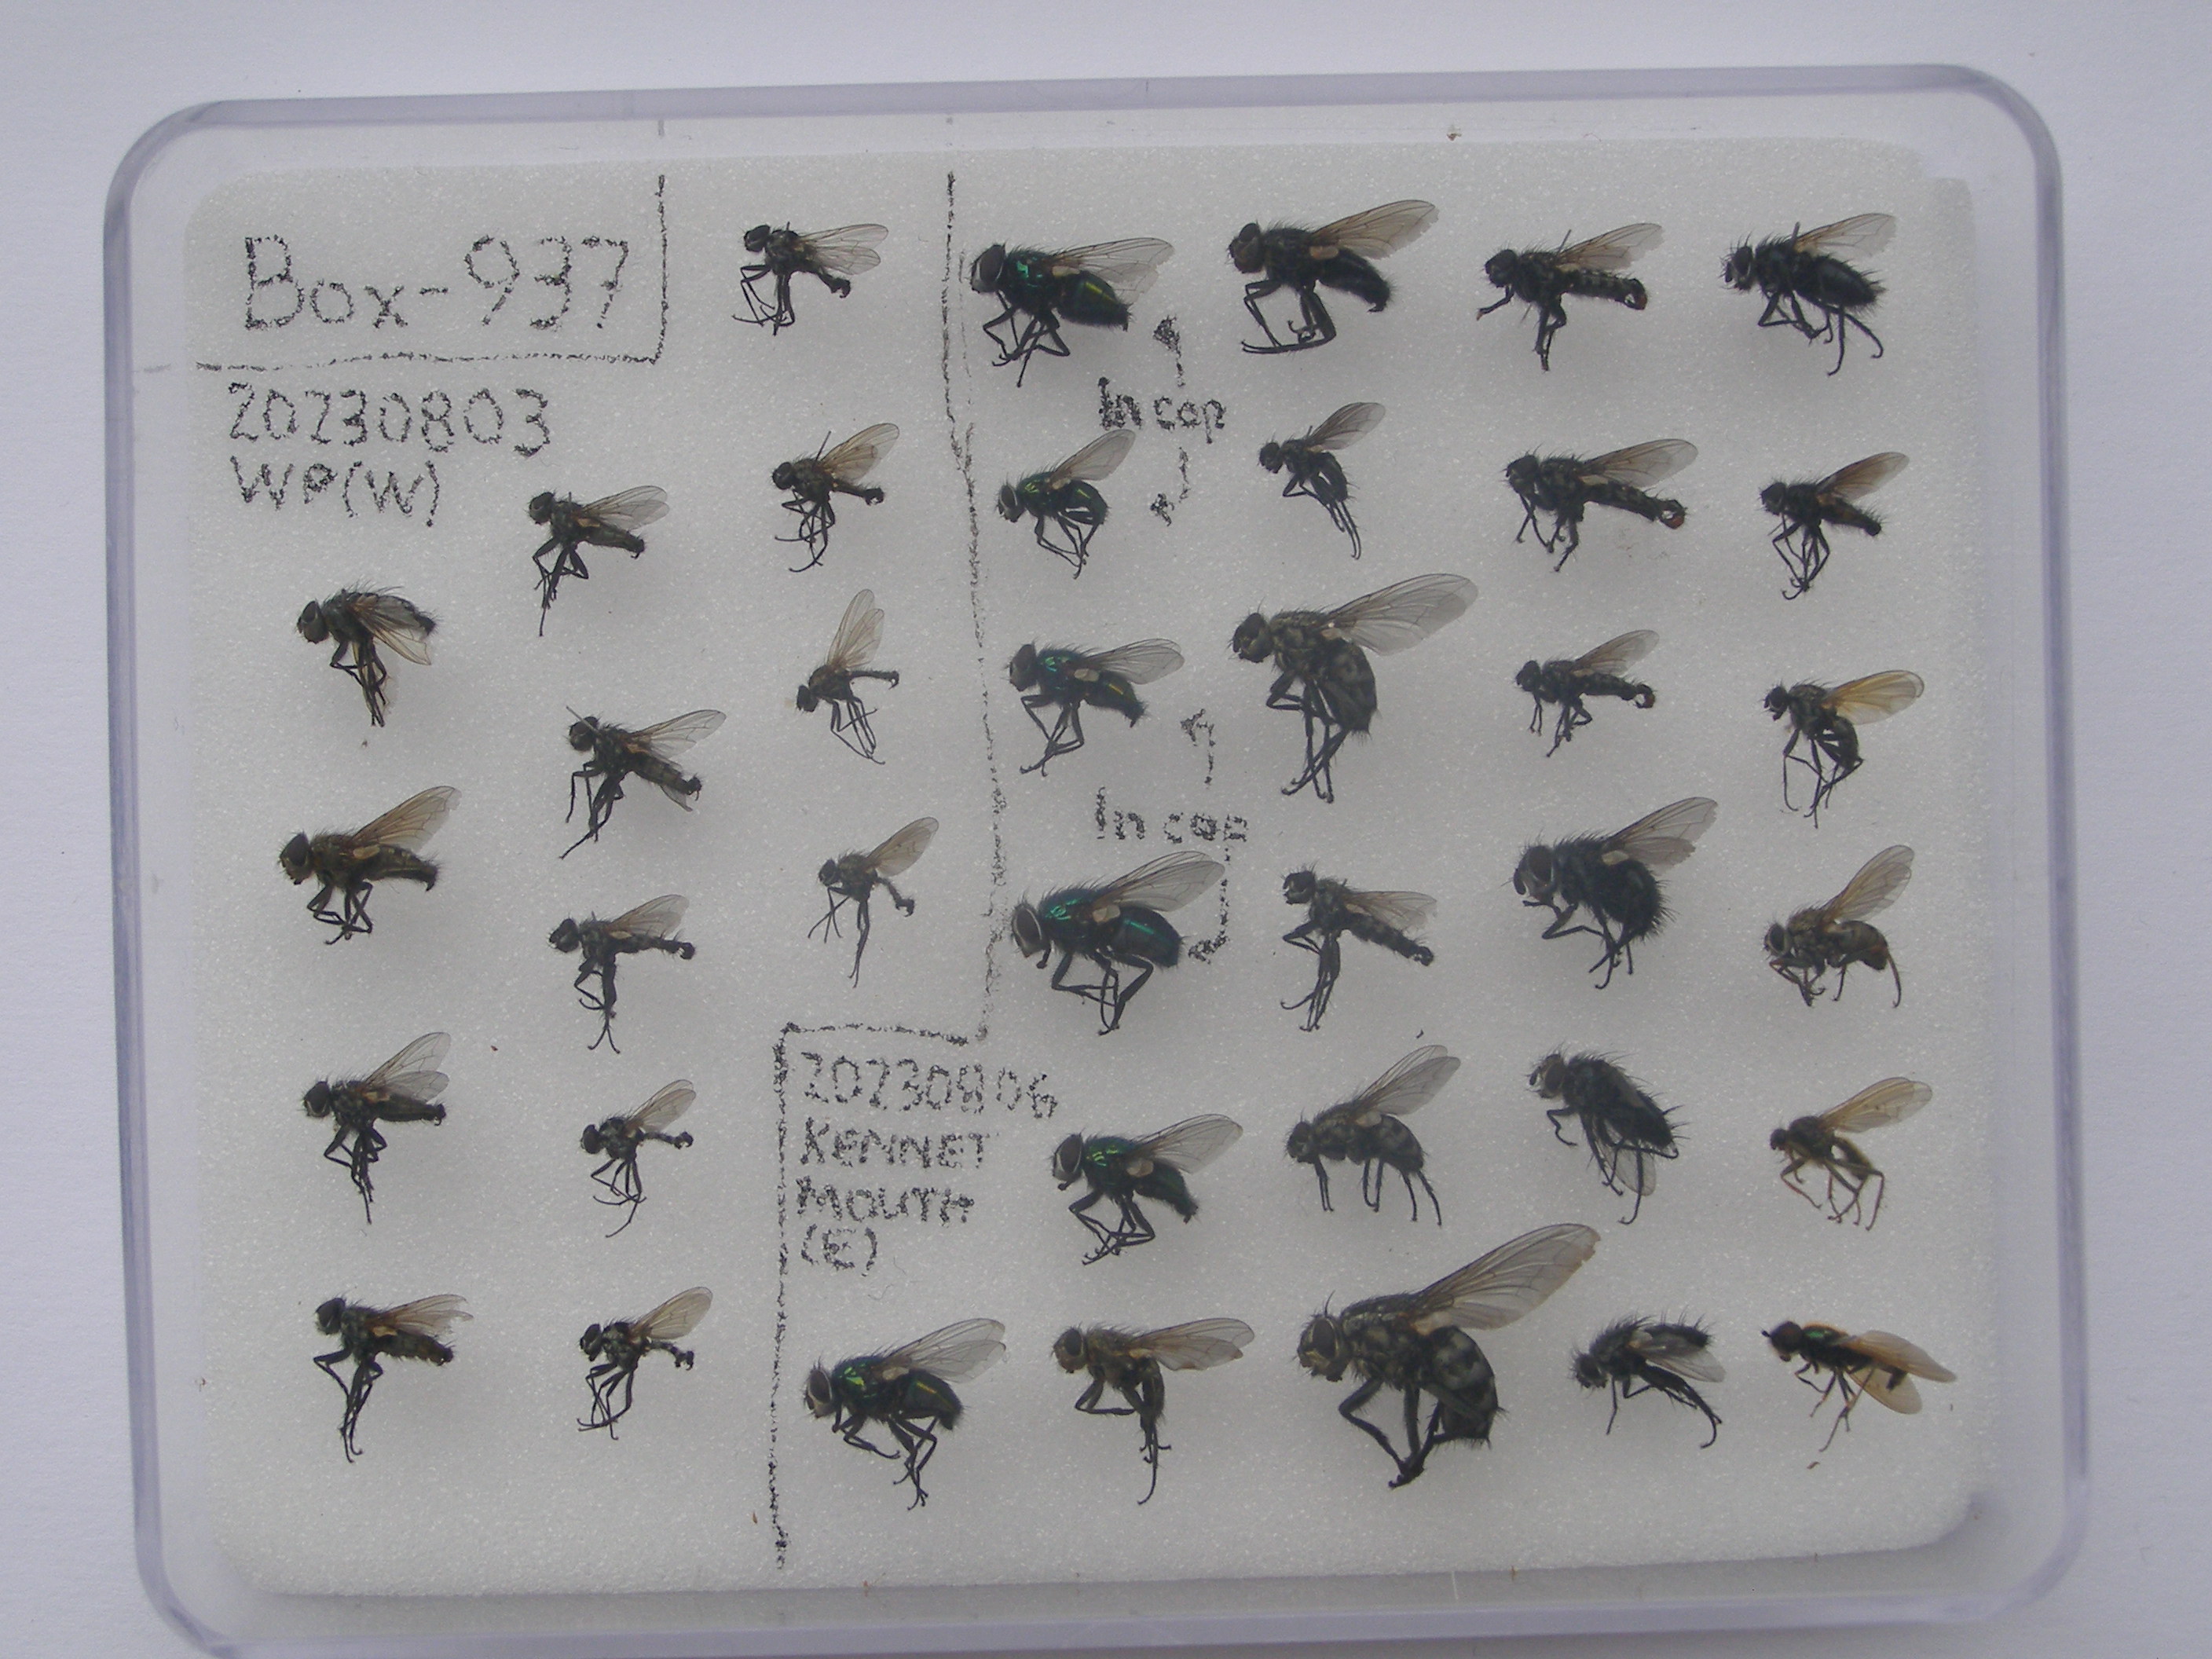 Box-937
20230803
WP(W)
In cop
In cop
20230806
KENNET
MOUTH
(E)